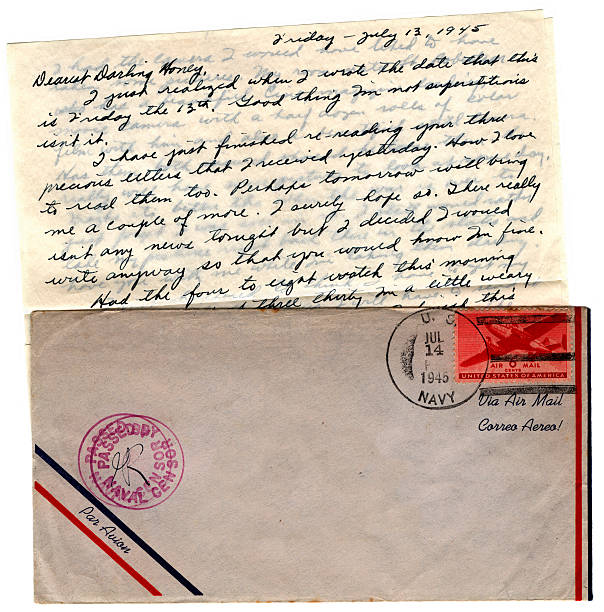 Friday - July 13, 1945
Dearest Darling Honey,
I just realized when I wrote the date that this
is Friday the 13th. Good thing I'm not superstitious
isn't it.
I have just finished re-reading your three
precious letters that I received yesterday. How I love
to read them too. Perhaps tomorrow will bring
me a couple of more. I surely hope so. There really
isn't any news tonight but I decided I would
write anyway so that you would know I'm fine.
Had the four to eight watch this morning
three thirty I'm a little weary
this
U. S.
JUL
14
1945
NAVY
AIR 6 MAIL
CENTS
UNITED STATES OF AMERICA
Via Air Mail
Correo Aereo!
PASSED BY
NAVAL CENSOR
PASSED BY
NAVAL CENSOR
Par Avion